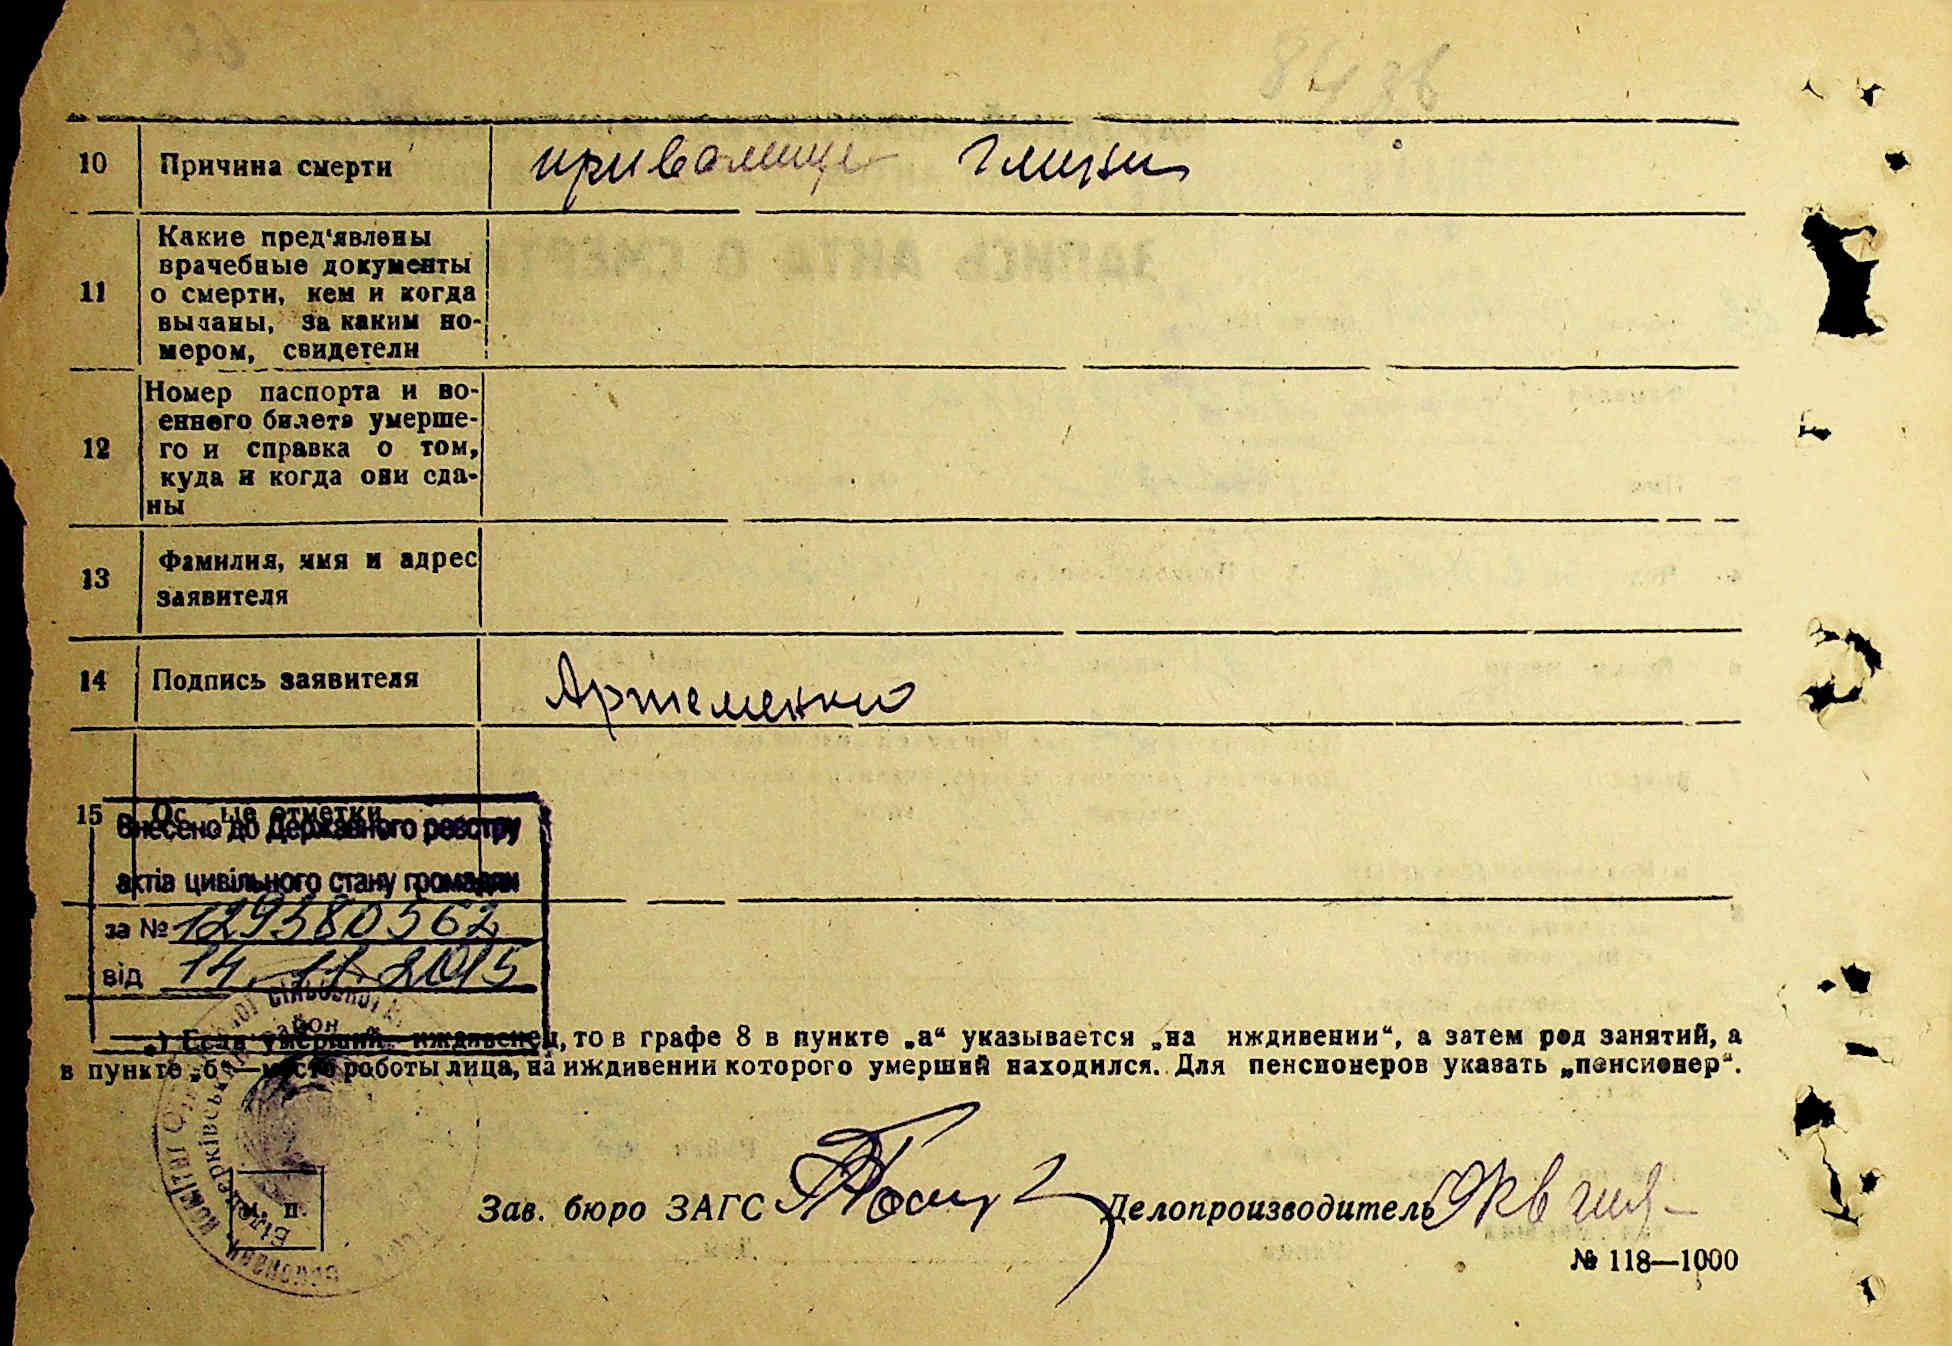 10 Причина смерти
11 Какие пред'явлены
врачебные документы
о смерти, кем и когда
выданы, за каким но-
мером, свидетели
12 Номер паспорта и во-
енного билета умерше-
го и справка о том,
куда и когда они сда-
ны
13 Фамилия, имя и адрес
заявителя
14 Подпись заявителя Артеменко
15 отметки
Внесено до Державного реєстру
актів цивільного стану громадян
за № 129380562
від 14.11.2015
Если умерший иждивенец, то в графе 8 в пункте „а“ указывается „на иждивении“, а затем род занятий, а
в пункте „б“—место роботы лица, на иждивении которого умерший находился. Для пенсионеров указать „пенсионер“.
м. п.
Зав. бюро ЗАГС Делопроизводитель
№ 118—1000